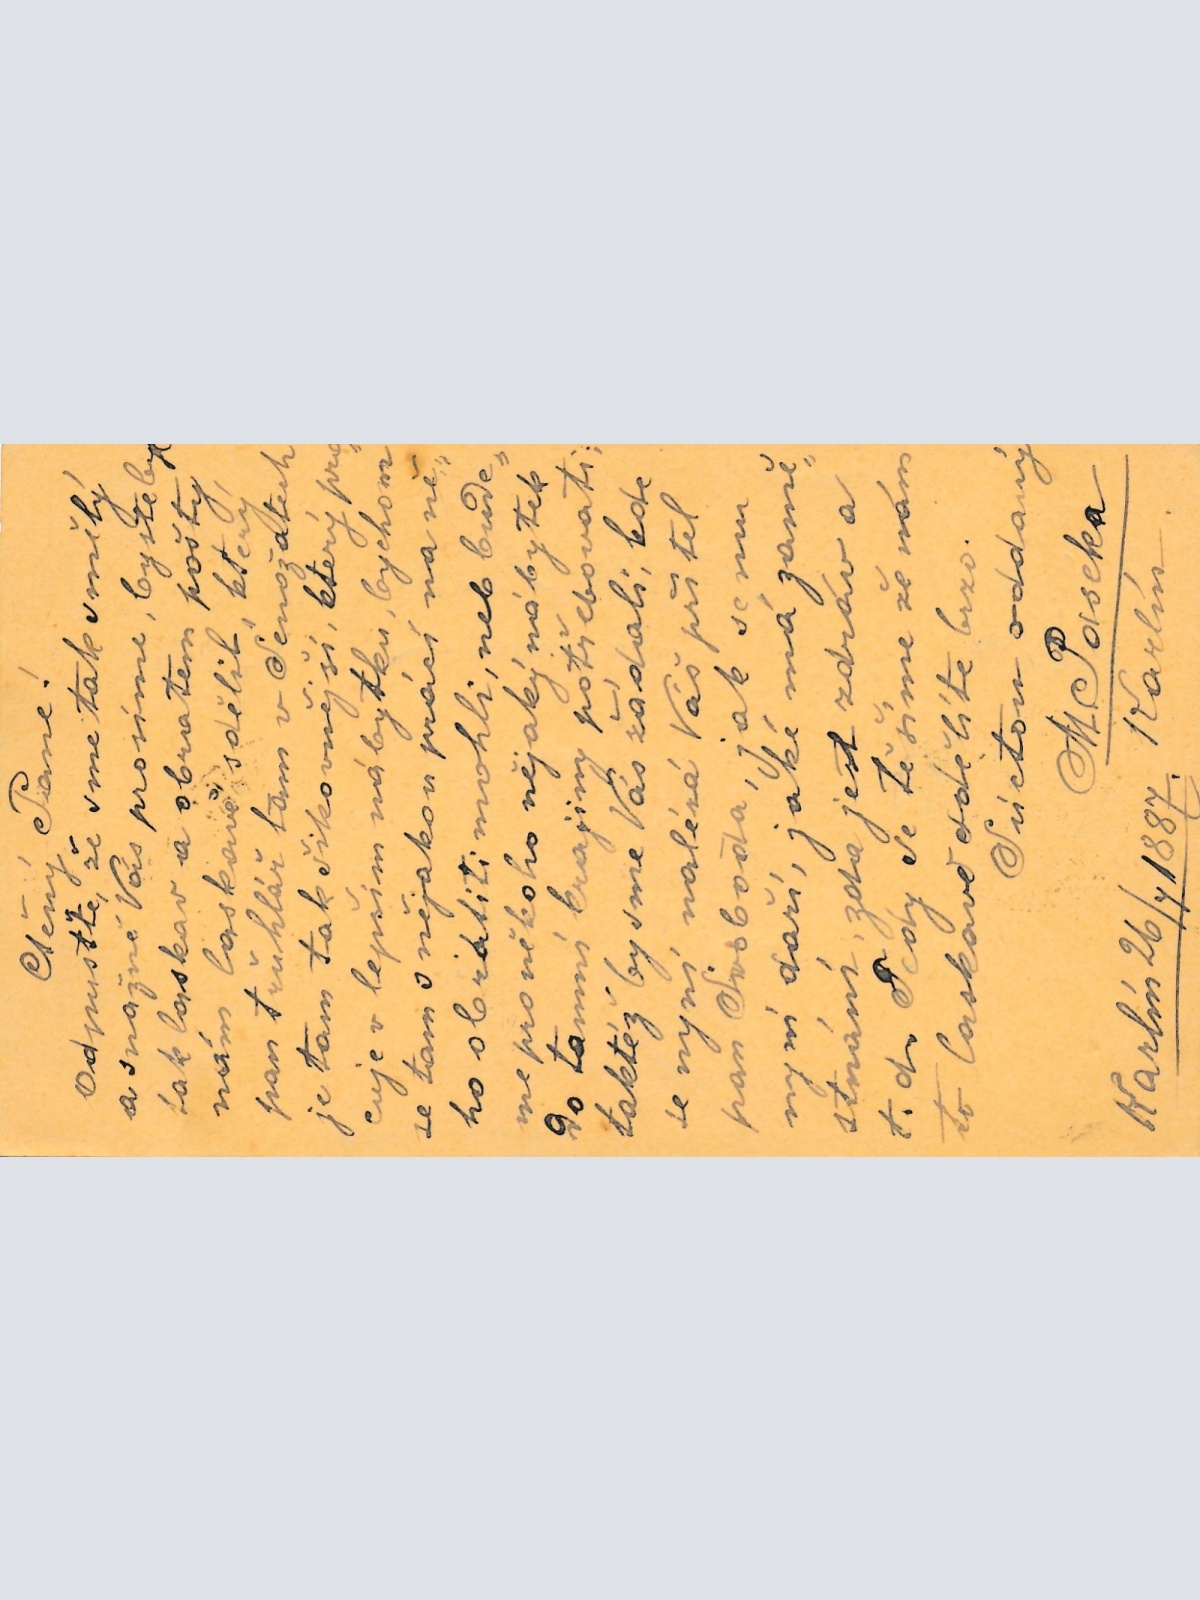 Ctěný Pane!
Odpustte, že sme tak smělý
a snažně Vás prosíme, byste byl
tak laskav a obratem pošty
nám laskavě sdělil, který
pan truhlář tam v Senožatech
je tam tak šikovnější, který pra
cuje v lepším nábytku, bychom
se tam s nějakou prácí na ně„
ho obrátiti mohli, neb bude„
me pro někoho nějaký nábytek
do tamní krajiny potřebovati;
taktéž by sme Vás žádali, kde
se nyní nalézá Váš přítel
pan Svoboda, jak se mu
nyní daří, jaké má zamě„
stnání, zda jest zdráv a
t. d. Tedy se těšíme že nám
to laskavě sdělíte brzo.
S úctou oddaný
M. Paseka
Karlín 26/7 1887. Karlín